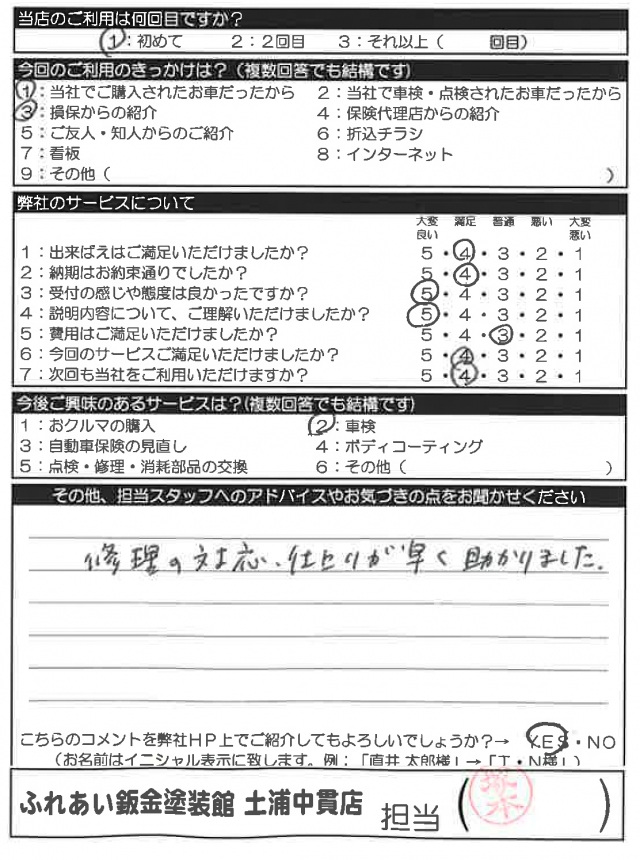 当店のご利用は何回目ですか？
1：初めて 2：2回目 3：それ以上（ 回目）
今回のご利用のきっかけは？（複数回答でも結構です）
1：当社でご購入されたお車だったから 2：当社で車検・点検されたお車だったから
3：損保からの紹介 4：保険代理店からの紹介
5：ご友人・知人からのご紹介 6：折込チラシ
7：看板 8：インターネット
9：その他（ ）
弊社のサービスについて
大変良い 満足 普通 悪い 大変悪い
1：出来ばえはご満足いただけましたか？ 5・4・3・2・1
2：納期はお約束通りでしたか？ 5・4・3・2・1
3：受付の感じや態度は良かったですか？ 5・4・3・2・1
4：説明内容について、ご理解いただけましたか？ 5・4・3・2・1
5：費用はご満足いただけましたか？ 5・4・3・2・1
6：今回のサービスご満足いただけましたか？ 5・4・3・2・1
7：次回も当社をご利用いただけますか？ 5・4・3・2・1
今後ご興味のあるサービスは？（複数回答でも結構です）
1：おクルマの購入 2：車検
3：自動車保険の見直し 4：ボディコーティング
5：点検・修理・消耗部品の交換 6：その他（ ）
その他、担当スタッフへのアドバイスやお気づきの点をお聞かせください
修理の対応、仕上りが早く助かりました.
こちらのコメントを弊社HP上でご紹介してもよろしいでしょうか？→ YES・NO
（お名前はイニシャル表示に致します。例：「直井 太郎様」→「T・N様」）
ふれあい鈑金塗装館 土浦中貫店 担当（ ）